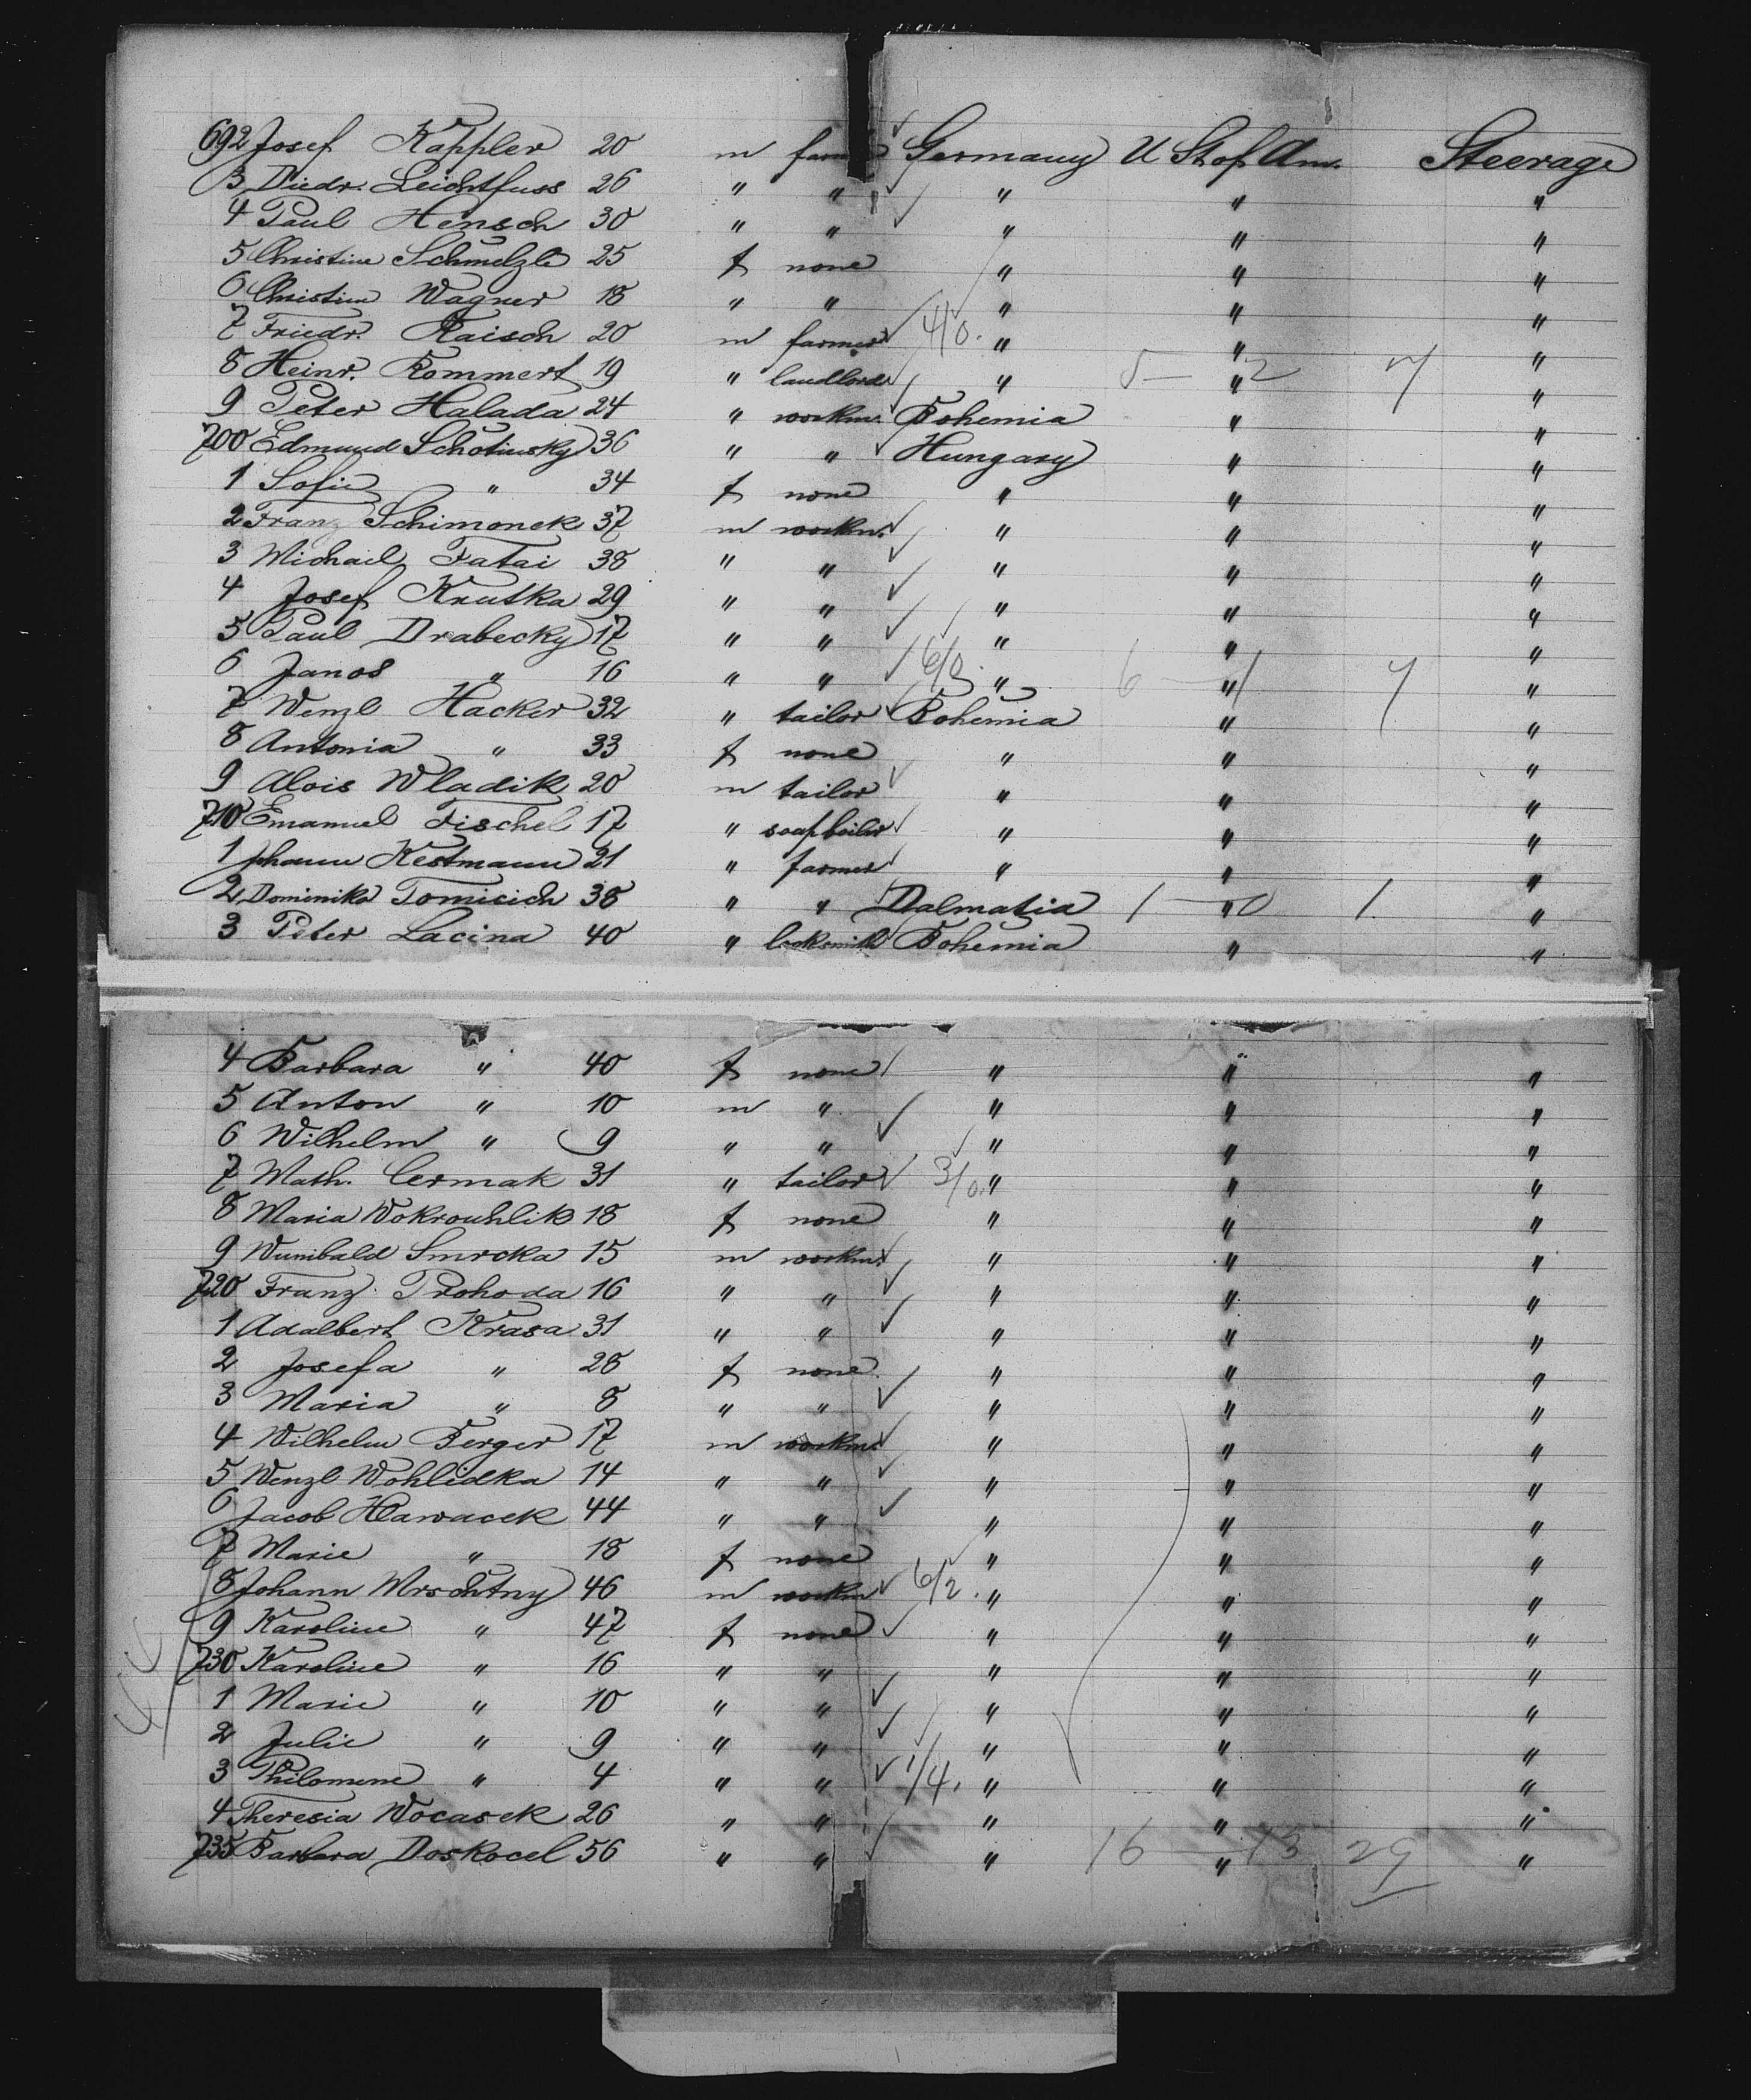 692 Josef Kappler 20 m farm Germany U St of Am. Steerage
3 Diedr. Leichtfuss 26 " " " " "
4 Paul Hensch 30 " " " " "
5 Christine Schmelzle 25 f none " " "
6 Christine Wagner 18 " " " " "
7 Friedr. Raisch 20 m farmer 4/0. " " "
8 Heinr. Rommert 19 " landlord " 5 — 2 " 7 "
9 Peter Halada 24 " workm. Bohemia " "
700 Edmund Schotinsky 36 " " Hungary " "
1 Sofie " 34 f none " " "
2 Franz Schimonek 37 m workm. " " "
3 Michael Fatai 38 " " " " "
4 Josef Krutka 29 " " " " "
5 Paul Drabecky 17 " " " " "
6 Janos " 16 " " 6/0. " 6 — 1 " 7 "
7 Wenzl Hacker 32 " tailor Bohemia " "
8 Antonia " 33 f none " " "
9 Alois Wladik 20 m tailor " " "
710 Emanuel Fischel 17 " soapboiler " " "
1 Johann Kestmann 21 " farmer " " "
2 Dominika Tomicich 38 " " Dalmatia 1 — 0 " 1. "
3 Peter Lacina 40 " locksmith Bohemia " "
4 Barbara " 40 f none " " "
5 Anton " 10 m " " " "
6 Wilhelm " 9 " " " " "
7 Math. Cermak 31 " tailor 3/0. " " "
8 Maria Wokrouhlik 18 f none " " "
9 Wunibald Smrcka 15 m workm. " " "
720 Franz Prohoda 16 " " " " "
1 Adalbert Krasa 31 " " " " "
2 Josefa " 28 f none " " "
3 Maria " 8 " " " " "
4 Wilhelm Berger 17 m workm. " " "
5 Wenzl Wohlidka 14 " " " " "
6 Jacob Hawacek 44 " " " " "
7 Marie " 18 f none " " "
8 Johann Mrschtny 46 m workm 6/2. " " "
9 Karoline " 47 f none " " "
730 Karoline " 16 " " " " "
1 Marie " 10 " " " " "
2 Julie " 9 " " " " "
3 Philomene " 4 " " 1/4. " " "
4 Theresia Wocasek 26 " " " " "
735 Barbara Doskocel 56 " " " 16 — 13 " 29 "